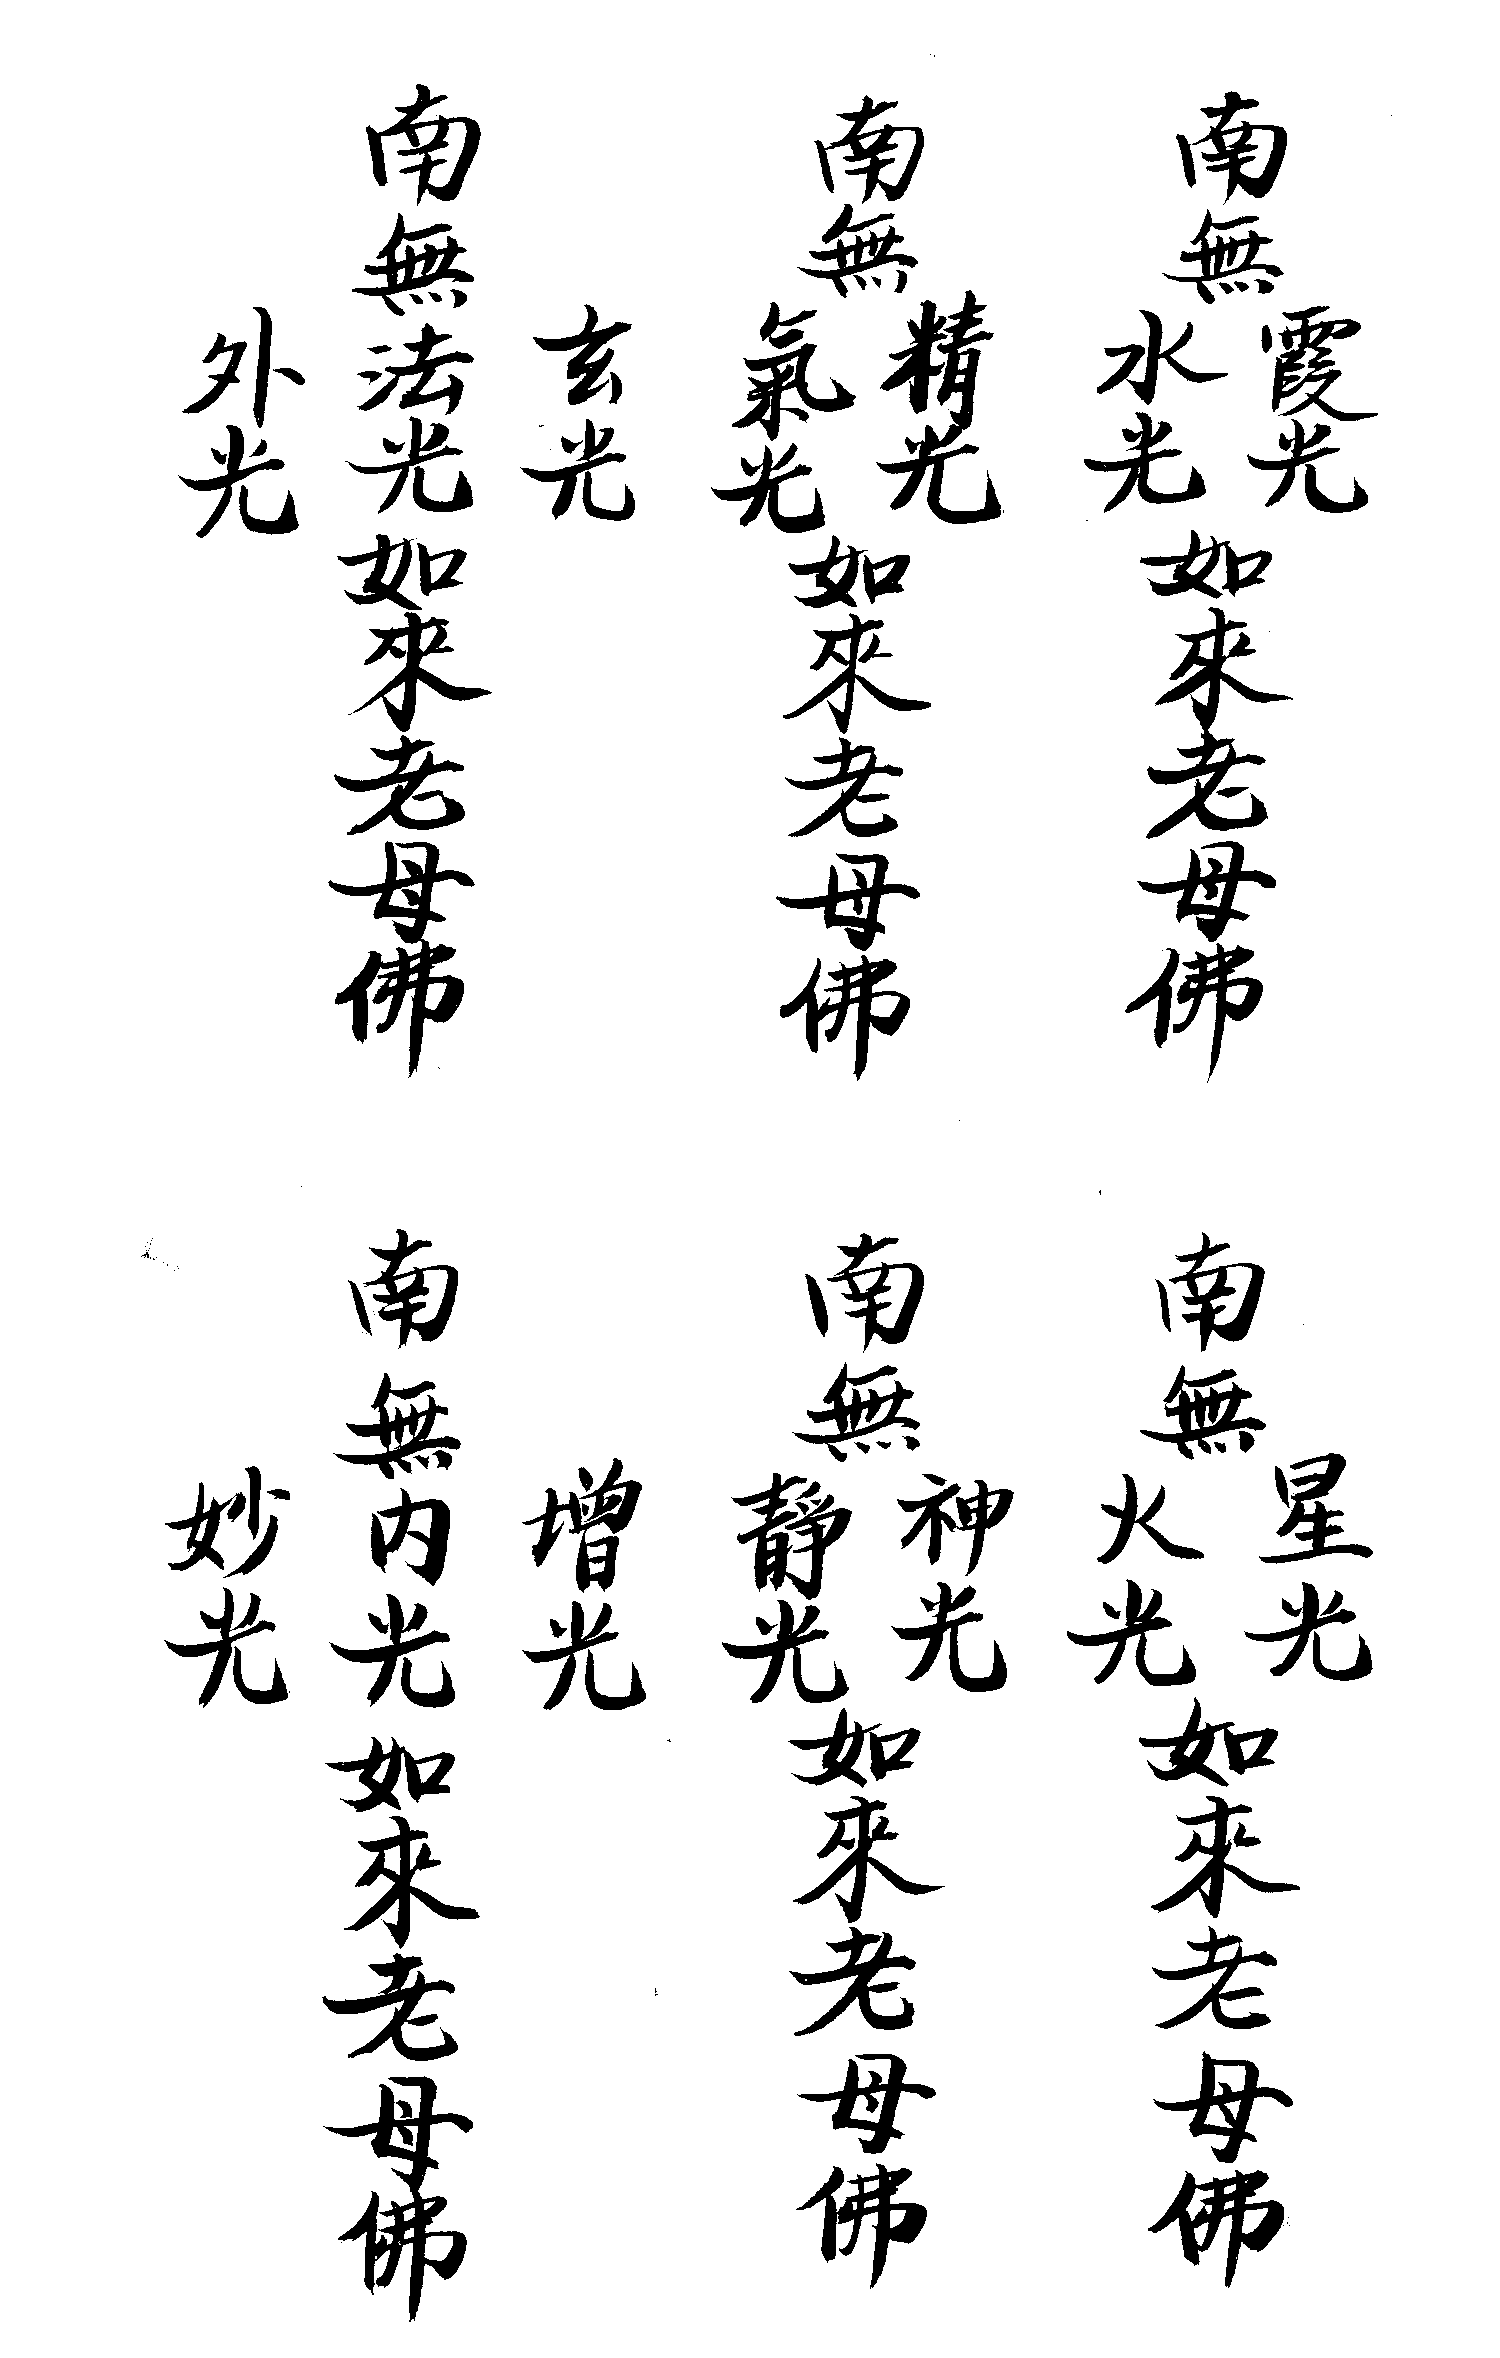 南無
霞光
水光
如來老母佛
南無
精光
氣光
如來老母佛
玄光
南無法光如來老母佛
外光
南無
星光
火光
如來老母佛
南無
神光
靜光
如來老母佛
增光
南無內光如來老母佛
妙光